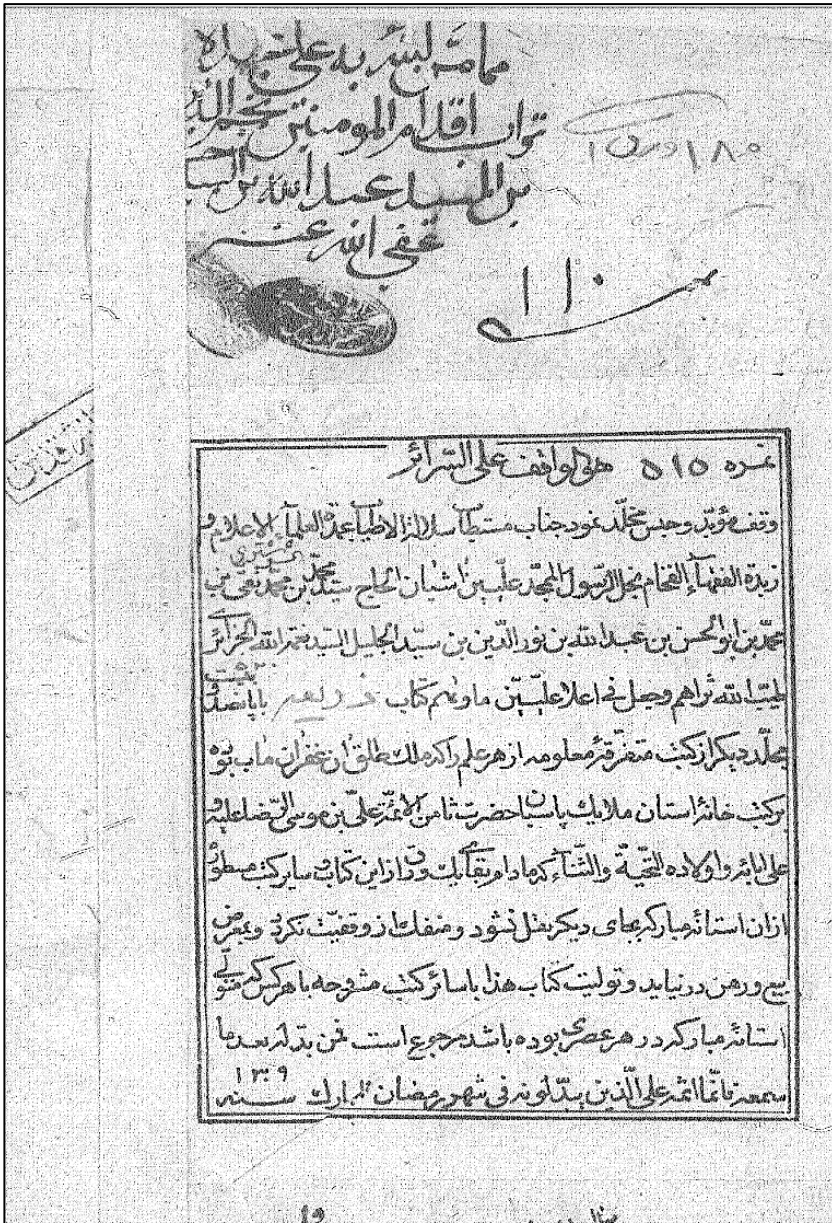 مما من الله به علی
تراب اقدام المومنین نجم الدین
بن السید عبد الله بن
عفی الله عنه
۱۸۰ ورق
۱۱۰
نمره ۵۱۵ هو الواقف علی السرائر
وقف مؤبد و حبس مخلد نمود جناب مستطاب سلالة الاطیاب عمدة العلماء الاعلام و
زبدة الفقهاء الفخام نجل الرسول المجد علیین اشیان الحاج سید محمد بن محمد تقی بن
شوشتری
محمد بن ابو الحسن بن عبد الله بن نور الدین بن سید الجلیل السید نعمة الله الجزائری
طیب الله ثراهم وجعل فی اعلا علیین ماویهم کتاب با پانصد و
بیست
مجلد دیکر از کتب متفرقه معلومه از هر علم را که ملک طلق ان غفران ماب بوده
بر کتب خانه استان ملایک پاسبان حضرت ثامن الائمة علی بن موسی الرضا علیه و
علی ابائه و اولاده التحیة والثناء که مادام بقای یک ورق از این کتاب و سایر کتب مسطوره
از ان استانه مبارکه بجای دیکر نقل نشود و منفک از وقفیت نکردد و بمعرض
بیع و رهن در نیاید و تولیت کتاب هذا با سائر کتب مشروحه با هر کس که متولی
استانه مبارکه در هر عصری بوده باشد مرجوع است فمن بدله بعد ما
سمعه فانما اثمه علی الذین یبدلونه فی شهر رمضان المبارک سنه ۱۳۰۹